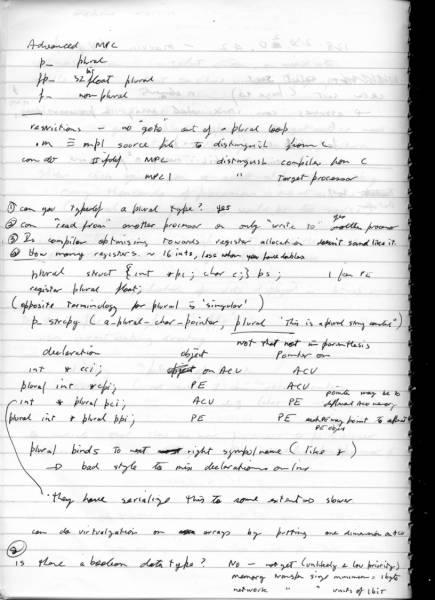 Advanced MPC
p_ plural
fp_ 32 bit float plural
f_ non-plural
restrictions - no "goto" out of a plural loop
.m ≡ mpl source file to distinguish from C
can do # ifdef MPC distinguish compiler from C
MPC1 " target processor
① can you typedef a plural type? yes
② can "read from" another processor or only "write to" yes another processor
③ Is compiler optimising towards register allocation doesn't sound like it.
④ How many registers. ~ 16 ints, less when you have doubles
plural struct { int *pi; char c;} ps; 1 per PE
register plural float;
(opposite terminology for plural is 'singular')
p_strcpy ( a-plural-char-pointer, plural "This is a plural string constant")
not that not in parenthesis
declaration object Pointer on
int * cci; on ACU ACU
plural int * cpi; PE ACU
int * plural pci; ACU PE pointer may be to different ACU memory
plural int * plural ppi; PE PE each PE may point to a different PE object
plural binds to right symbol name ( like * )
→ bad style to mix declarations on line
they have serialize this to some extent → slower
can do virtualization on arrays by putting one dimension on ACU
②
is there a boolean data type? No - not yet (unlikely & low priority)
memory transfer size minimum = 1 byte
network " " units of 1 bit